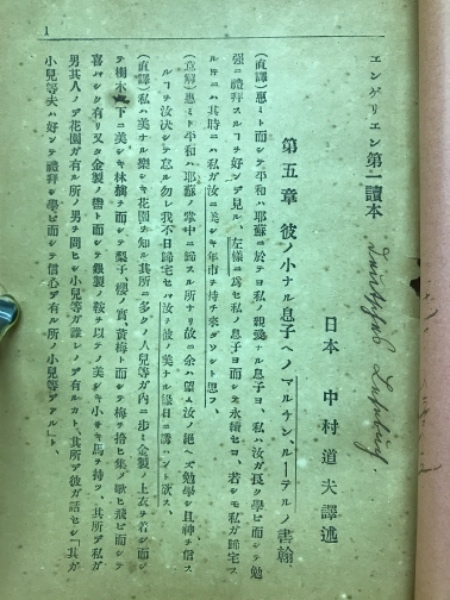 1
エンゲリエン第一讀本
日本 中村道夫譯述
第五章 彼ノ小ナル息子ヘノマルチン、ルーテルノ書翰
(直譯)惠ミト而シテ平和ハ耶蘇ニ於テヨ私ノ親愛ナル息子ヨ、私ハ汝ガ良ク學ビ而シテ勉
强ニ禮拜スルヿチ好ンデ見ル、左樣ニ爲セ私ノ息子ヨ而シテ永續セヨ、若シモ私ガ歸宅ス
ルトニハ其時ニハ私ガ汝ニ美シキ年市チ持チ來ダソント思フ、
(意解)惠ミト平和ハ耶蘇ノ掌中ニ歸スル所ナリ故ニ余ハ望ム汝ノ絕ヘズ勉學シ且神チ信ス
ルヿチ汝決シテ怠ル勿レ我不日歸宅セハ汝ノ彼ノ美ナル緣日ニ誘ハント欲ス、
(直譯)私ハ美ナル樂シキ花園チ知ル其所ニ多クノ人兒等ガ內ニ步ミ金製ノ上衣チ着シ而シ
テ樹木ノ下ニ美シキ林檎チ而シテ梨子、櫻ノ實、黃梅ト而シテ梅チ拾ヒ集メ歌ヒ飛ビ而シテ
喜バシク有リ又タ金製ノ轡ト而シテ銀製ノ鞍チ以テノ美シキ小サキ馬チ持ツ、其所ノ私ガ
男其人ノデ花園ガ有ル所ノ男チ問ヒシ小兒等ガ誰レノデ有ルカト、其所デ彼ガ話セシ「其ガ
小兒等夫ハ好ンテ禮拜シ學ビ而シテ信心デ有ル所ノ小兒等デアル」ト、